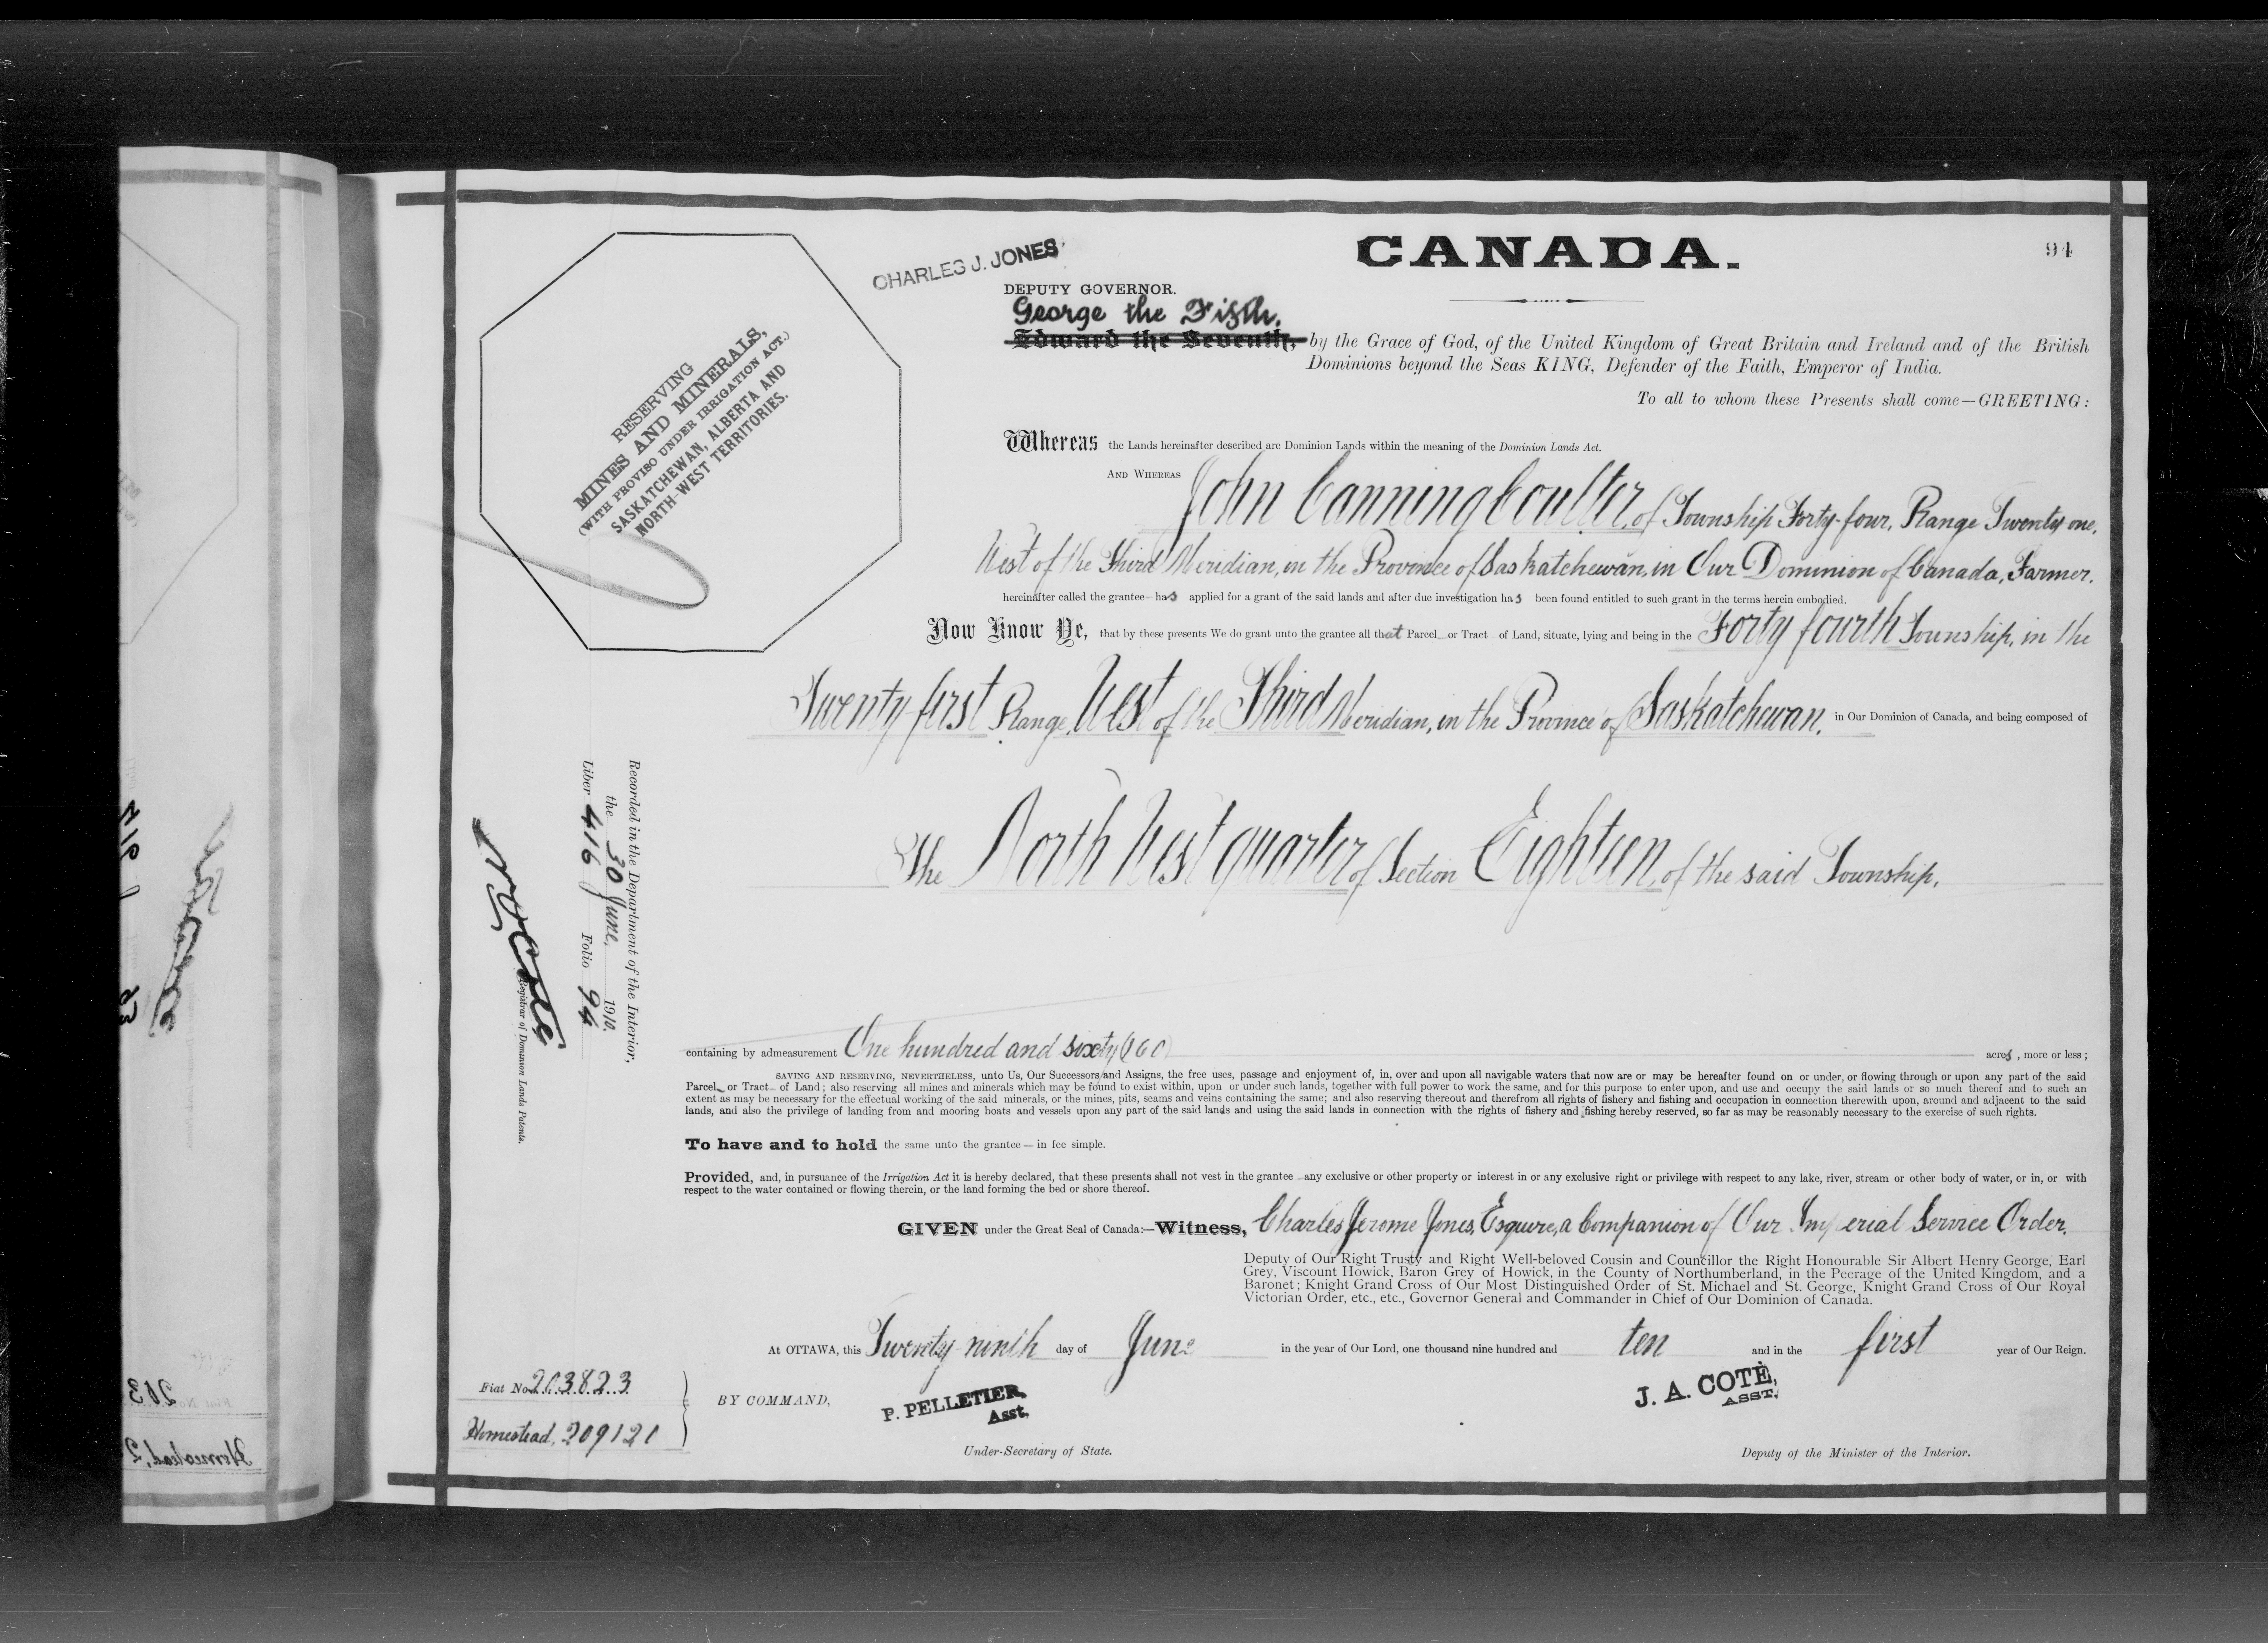 CANADA.
94
CHARLES J. JONES
DEPUTY GOVERNOR.
George the Fifth,
Edward the Seventh, by the Grace of God, of the United Kingdom of Great Britain and Ireland and of the British
Dominions beyond the Seas KING, Defender of the Faith, Emperor of India.
To all to whom these Presents shall come—GREETING:
RESERVING
MINES AND MINERALS,
(WITH PROVISO UNDER IRRIGATION ACT.)
SASKATCHEWAN, ALBERTA AND
NORTH-WEST TERRITORIES.
Whereas the Lands hereinafter described are Dominion Lands within the meaning of the Dominion Lands Act.
AND WHEREAS John Canning Coulter, of Township Forty-four, Range Twenty one,
West of the Third Meridian, in the Province of Saskatchewan, in Our Dominion of Canada, Farmer.
hereinafter called the grantee— has applied for a grant of the said lands and after due investigation has been found entitled to such grant in the terms herein embodied.
Now Know Ye, that by these presents We do grant unto the grantee all that Parcel or Tract of Land, situate, lying and being in the Forty fourth Township, in the
Twenty-first Range, West of the Third Meridian, in the Province of Saskatchewan, in Our Dominion of Canada, and being composed of
The North West quarter of Section Eighteen, of the said Township,
containing by admeasurement One hundred and sixty (160) acres, more or less;
SAVING AND RESERVING, NEVERTHELESS, unto Us, Our Successors and Assigns, the free uses, passage and enjoyment of, in, over and upon all navigable waters that now are or may be hereafter found on or under, or flowing through or upon any part of the said
Parcel or Tract of Land; also reserving all mines and minerals which may be found to exist within, upon or under such lands, together with full power to work the same, and for this purpose to enter upon, and use and occupy the said lands or so much thereof and to such an
extent as may be necessary for the effectual working of the said minerals, or the mines, pits, seams and veins containing the same; and also reserving thereout and therefrom all rights of fishery and fishing and occupation in connection therewith upon, around and adjacent to the said
lands, and also the privilege of landing from and mooring boats and vessels upon any part of the said lands and using the said lands in connection with the rights of fishery and fishing hereby reserved, so far as may be reasonably necessary to the exercise of such rights.
To have and to hold the same unto the grantee — in fee simple.
Provided, and, in pursuance of the Irrigation Act it is hereby declared, that these presents shall not vest in the grantee any exclusive or other property or interest in or any exclusive right or privilege with respect to any lake, river, stream or other body of water, or in, or with
respect to the water contained or flowing therein, or the land forming the bed or shore thereof.
GIVEN under the Great Seal of Canada:—Witness, Charles Jerome Jones, Esquire, a Companion of Our Imperial Service Order,
Deputy of Our Right Trusty and Right Well-beloved Cousin and Councillor the Right Honourable Sir Albert Henry George, Earl
Grey, Viscount Howick, Baron Grey of Howick, in the County of Northumberland, in the Peerage of the United Kingdom, and a
Baronet; Knight Grand Cross of Our Most Distinguished Order of St. Michael and St. George, Knight Grand Cross of Our Royal
Victorian Order, etc., etc., Governor General and Commander in Chief of Our Dominion of Canada.
At OTTAWA, this Twenty ninth day of June in the year of Our Lord, one thousand nine hundred and ten and in the first year of Our Reign.
BY COMMAND,
P. PELLETIER,
Asst.
Under-Secretary of State.
J. A. COTÉ,
ASST.
Deputy of the Minister of the Interior.
Recorded in the Department of the Interior,
the 30 June, 1910.
Liber 416 Folio 94
N O Coté
Registrar of Dominion Lands Patents.
Fiat No 203823
Homestead, 209121